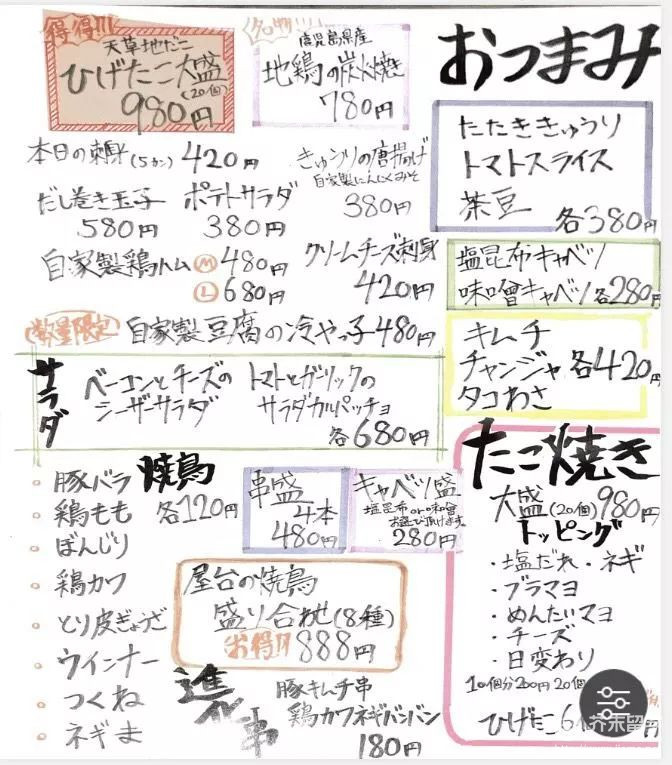 得得!!!
天草地だこ
ひげたこ大盛
(20個)
980円
名物!!!
鹿児島県産
地鶏の炭火焼き
780円
おつまみ
たたききゅうり
トマトスライス
茶豆
各380円
本日の刺身(5カン) 420円
きゅうりの唐揚げ
自家製にんにくみそ
380円
だし巻き玉子
580円
ポテトサラダ
380円
自家製鶏ハム Ⓜ 480円
Ⓛ 680円
クリームチーズ刺身
420円
塩昆布キャベツ
味噌キャベツ 各280円
数量限定 自家製豆腐の冷やっ子 480円
キムチ
チャンジャ 各420円
タコわさ
サラダ
ベーコンとチーズの
シーザーサラダ
トマトとガーリックの
サラダカルパッチョ
各680円
焼鳥
各120円
豚バラ
鶏もも
ぼんじり
鶏カワ
とり皮ぎょうざ
ウインナー
つくね
ネギま
串盛
4本
480円
キャベツ盛
塩昆布or味噌
お選び頂けます
280円
屋台の焼鳥
盛り合わせ(8種)
お得!! 888円
進化串
豚キムチ串
鶏カワネギバンバン
180円
たこ焼き
大盛(20個) 980円
トッピング
・塩だれ・ネギ
・ブラマヨ
・めんたいマヨ
・チーズ
・日変わり
10個分200円 20個
ひげたこ6